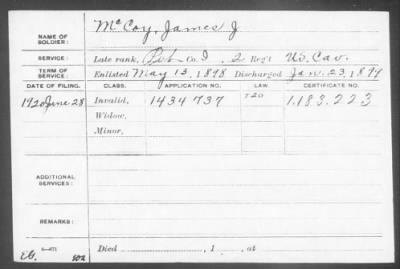 NAME OF SOLDIER: McCoy, James J
SERVICE: Late rank, Pvt Co. I, 2 Reg't U.S. Cav.
TERM OF SERVICE: Enlisted May 13, 1898 Discharged Jan. 23, 1899
DATE OF FILING. CLASS. APPLICATION NO. LAW. CERTIFICATE NO.
1920 June 28 Invalid, 1434737 T20 1,183,223
Widow,
Minor,
ADDITIONAL SERVICES:
REMARKS:
Died , 1 , at